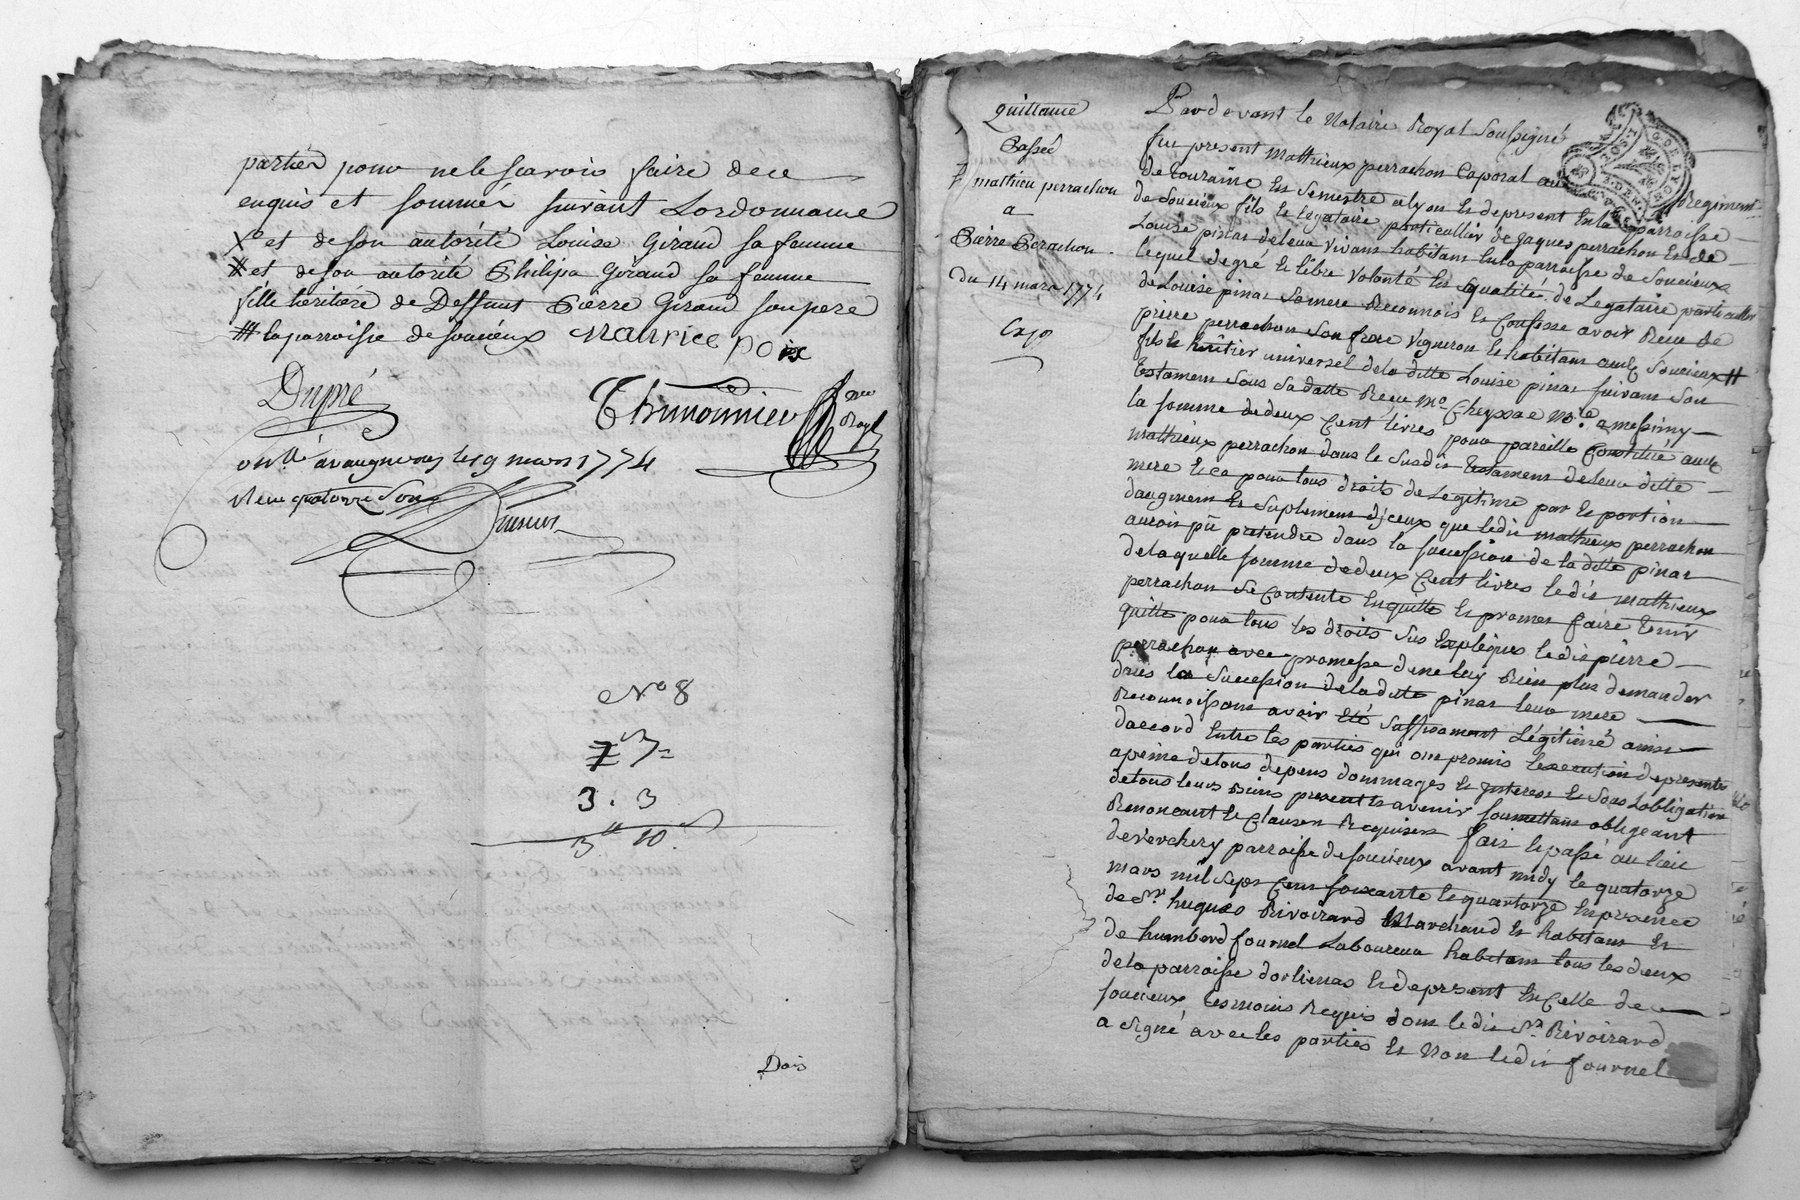 partier pour ne le scavoir faire dece
enquis et sommés suivant Lordonnance
X et de son autorité Louise Giraud sa femme
# et de son autorité Philipa Giraud sa femme
fille héritière de Deffunt Pierre Giraud son pere
# la parroisse de soucieux maurice poix
Dupré
Thimonnier Nre Royl
a vaugneray le 19 mars 1774
Reçu quatorze sous
No 8
7
3 . 3
3 10
Dois
quittance
Passée
mathieu perrachon
a
Pierre Perachon
du 14 mars 1774
Expo
Pardevant le Notaire Royal Soussigné
fut present Matthieux perrachon Caporal au Regiment
de touraine en Semestre a lyon et de present en la parroisse
de Soucieux fils et legataire particullier de jaques perrachon et de
Louise pinas de leur vivans habitans en la parroisse de Soucieux
lequel de gré et libre volonté en qualité de Legataire particullier
de Louise pinas sa mere Reconnois et Confesse avoir Receu de
pierre perrachon son frere vigneron et habitant aud Soucieux #
fils et heritier universel de la ditte Louise pinas suivant son
testament sous sa datte Receu Me Cheyssac Nore a messimy
la somme de deux Cent livres pour pareille constitué aud
matthieux perrachon dans le susdit testament de leur ditte
mere et ce pour tous droits de Legitime part et portion
daugment et suplement diceux que ledit matthieux perrachon
auroit pü pretendre dans la succession de la ditte pinas
de laquelle somme de deux Cent livres ledit matthieux
perrachon se contente en quitte et promet faire tenir
quitte pour tous les droits sus expliqués ledit pierre
perrachon avec promesse de ne luy Rien plus demander
dans la succession de la ditte pinas leur mere
Reconnoissant avoir été suffisament Légitimé ainsi
daccord entre les parties qui ont promis lexecution de presentes
a peine de tous depens dommages et interest et sous Lobligation
de tous leurs biens presents et avenir soumettant obligeant
Renoncant et Clauses Requises fait et passé au lieu
de verchery parroisse de soucieux avant midy le quatorze
mars mil sept Cent soixante et quatorze en presence
de Sr hugues Rivoirard Marchand et habitant et
de humberd fournel Laboureur habitant tous les deux
de la parroisse dorlienas et de present en Celle de
soucieux tesmoins Requis dont ledit Sr Rivoirard
a signé avec les parties et Non ledit fournel